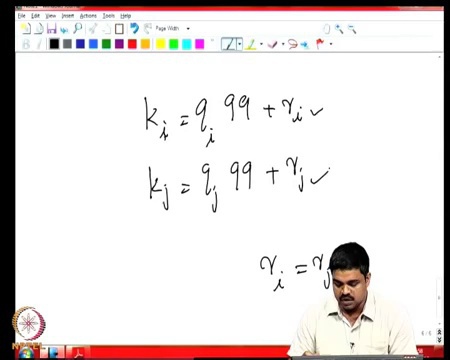 File Edit View Insert Actions Tools Help
Page Width
k_i = q_i 99 + r_i ✓
k_j = q_j 99 + r_j ✓
r_i = r_j
6/6